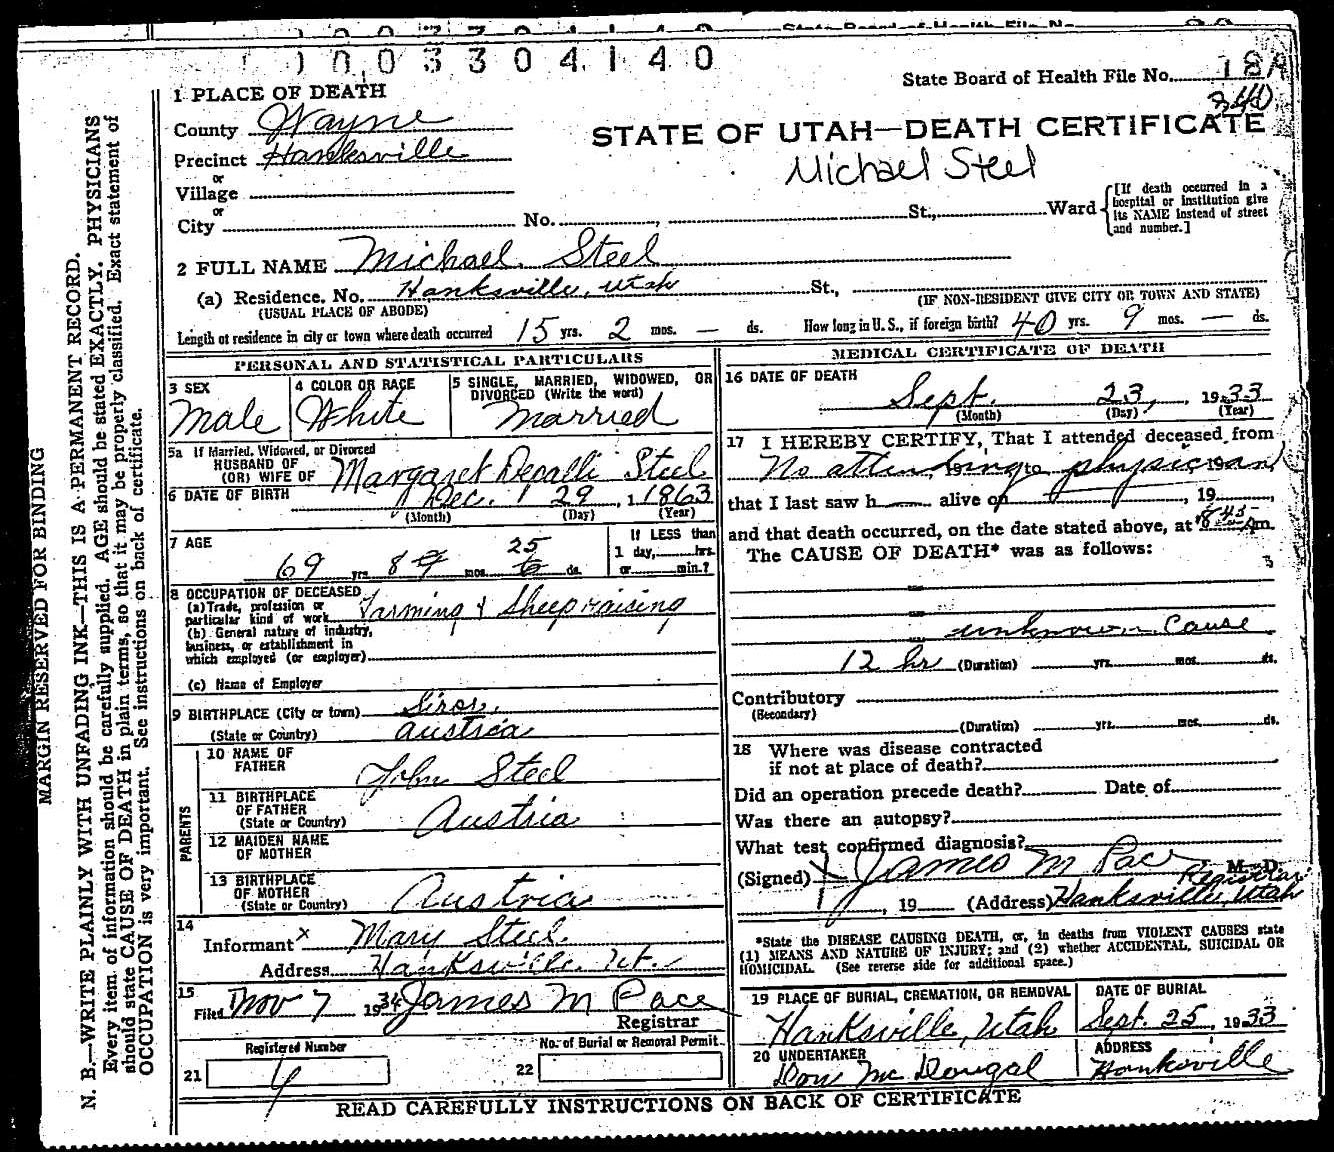 1 0 0 3 3 0 4 1 4 0
State Board of Health File No. 18A
340
1 PLACE OF DEATH
County Wayne
STATE OF UTAH—DEATH CERTIFICATE
Precinct Hanksville
Michael Steel
or
Village
or
City No. , St., Ward
[If death occurred in a hospital or institution give its NAME instead of street and number.]
2 FULL NAME Michael Steel
(a) Residence. No. Hanksville, Utah St.,
(USUAL PLACE OF ABODE) (IF NON-RESIDENT GIVE CITY OR TOWN AND STATE)
Length of residence in city or town where death occurred 15 yrs. 2 mos. — ds. How long in U. S., if foreign birth? 40 yrs. 9 mos. — ds.
PERSONAL AND STATISTICAL PARTICULARS
3 SEX
Male
4 COLOR OR RACE
White
5 SINGLE, MARRIED, WIDOWED, OR
DIVORCED (Write the word)
Married
5a If Married, Widowed, or Divorced
HUSBAND OF
(OR) WIFE OF Margaret Decalli Steel
6 DATE OF BIRTH Dec. 29, 1863
(Month) (Day) (Year)
7 AGE 25
69 yrs. 8 9 mos. 6 ds.
If LESS than
1 day, hrs.
or min.?
8 OCCUPATION OF DECEASED
(a) Trade, profession or
particular kind of work Farming & Sheepraising
(b) General nature of industry,
business, or establishment in
which employed (or employer)
(c) Name of Employer
9 BIRTHPLACE (City or town) Siror,
(State or Country) Austria
PARENTS
10 NAME OF
FATHER John Steel
11 BIRTHPLACE
OF FATHER
(State or Country) Austria
12 MAIDEN NAME
OF MOTHER
13 BIRTHPLACE
OF MOTHER
(State or Country) Austria
14
Informant x Mary Steel
Address Hanksville, Ut.
15
Filed Nov 7 1934 James M Pace
Registrar
Registered Number
21 4
No. of Burial or Removal Permit
22
MEDICAL CERTIFICATE OF DEATH
16 DATE OF DEATH
Sept. 23, 1933
(Month) (Day) (Year)
17 I HEREBY CERTIFY, That I attended deceased from
No attending physician
that I last saw h alive on , 19 ,
and that death occurred, on the date stated above, at 8:45 Am.
The CAUSE OF DEATH* was as follows:
3
unknown cause
12 hr (Duration) yrs. mos. ds.
Contributory
(Secondary)
(Duration) yrs. mos. ds.
18 Where was disease contracted
if not at place of death?
Did an operation precede death? Date of
Was there an autopsy?
What test confirmed diagnosis?
(Signed) X James M Pace M. D.
Registrar
, 19 (Address) Hanksville, Utah
*State the DISEASE CAUSING DEATH, or, in deaths from VIOLENT CAUSES state
(1) MEANS AND NATURE OF INJURY; and (2) whether ACCIDENTAL, SUICIDAL OR
HOMICIDAL. (See reverse side for additional space.)
19 PLACE OF BURIAL, CREMATION, OR REMOVAL
Hanksville, Utah
DATE OF BURIAL
Sept. 25, 1933
20 UNDERTAKER
Don McDougal
ADDRESS
Hanksville
READ CAREFULLY INSTRUCTIONS ON BACK OF CERTIFICATE
MARGIN RESERVED FOR BINDING
N. B.—WRITE PLAINLY WITH UNFADING INK—THIS IS A PERMANENT RECORD.
Every item of information should be carefully supplied. AGE should be stated EXACTLY. PHYSICIANS
should state CAUSE OF DEATH in plain terms, so that it may be properly classified. Exact statement of
OCCUPATION is very important. See instructions on back of certificate.